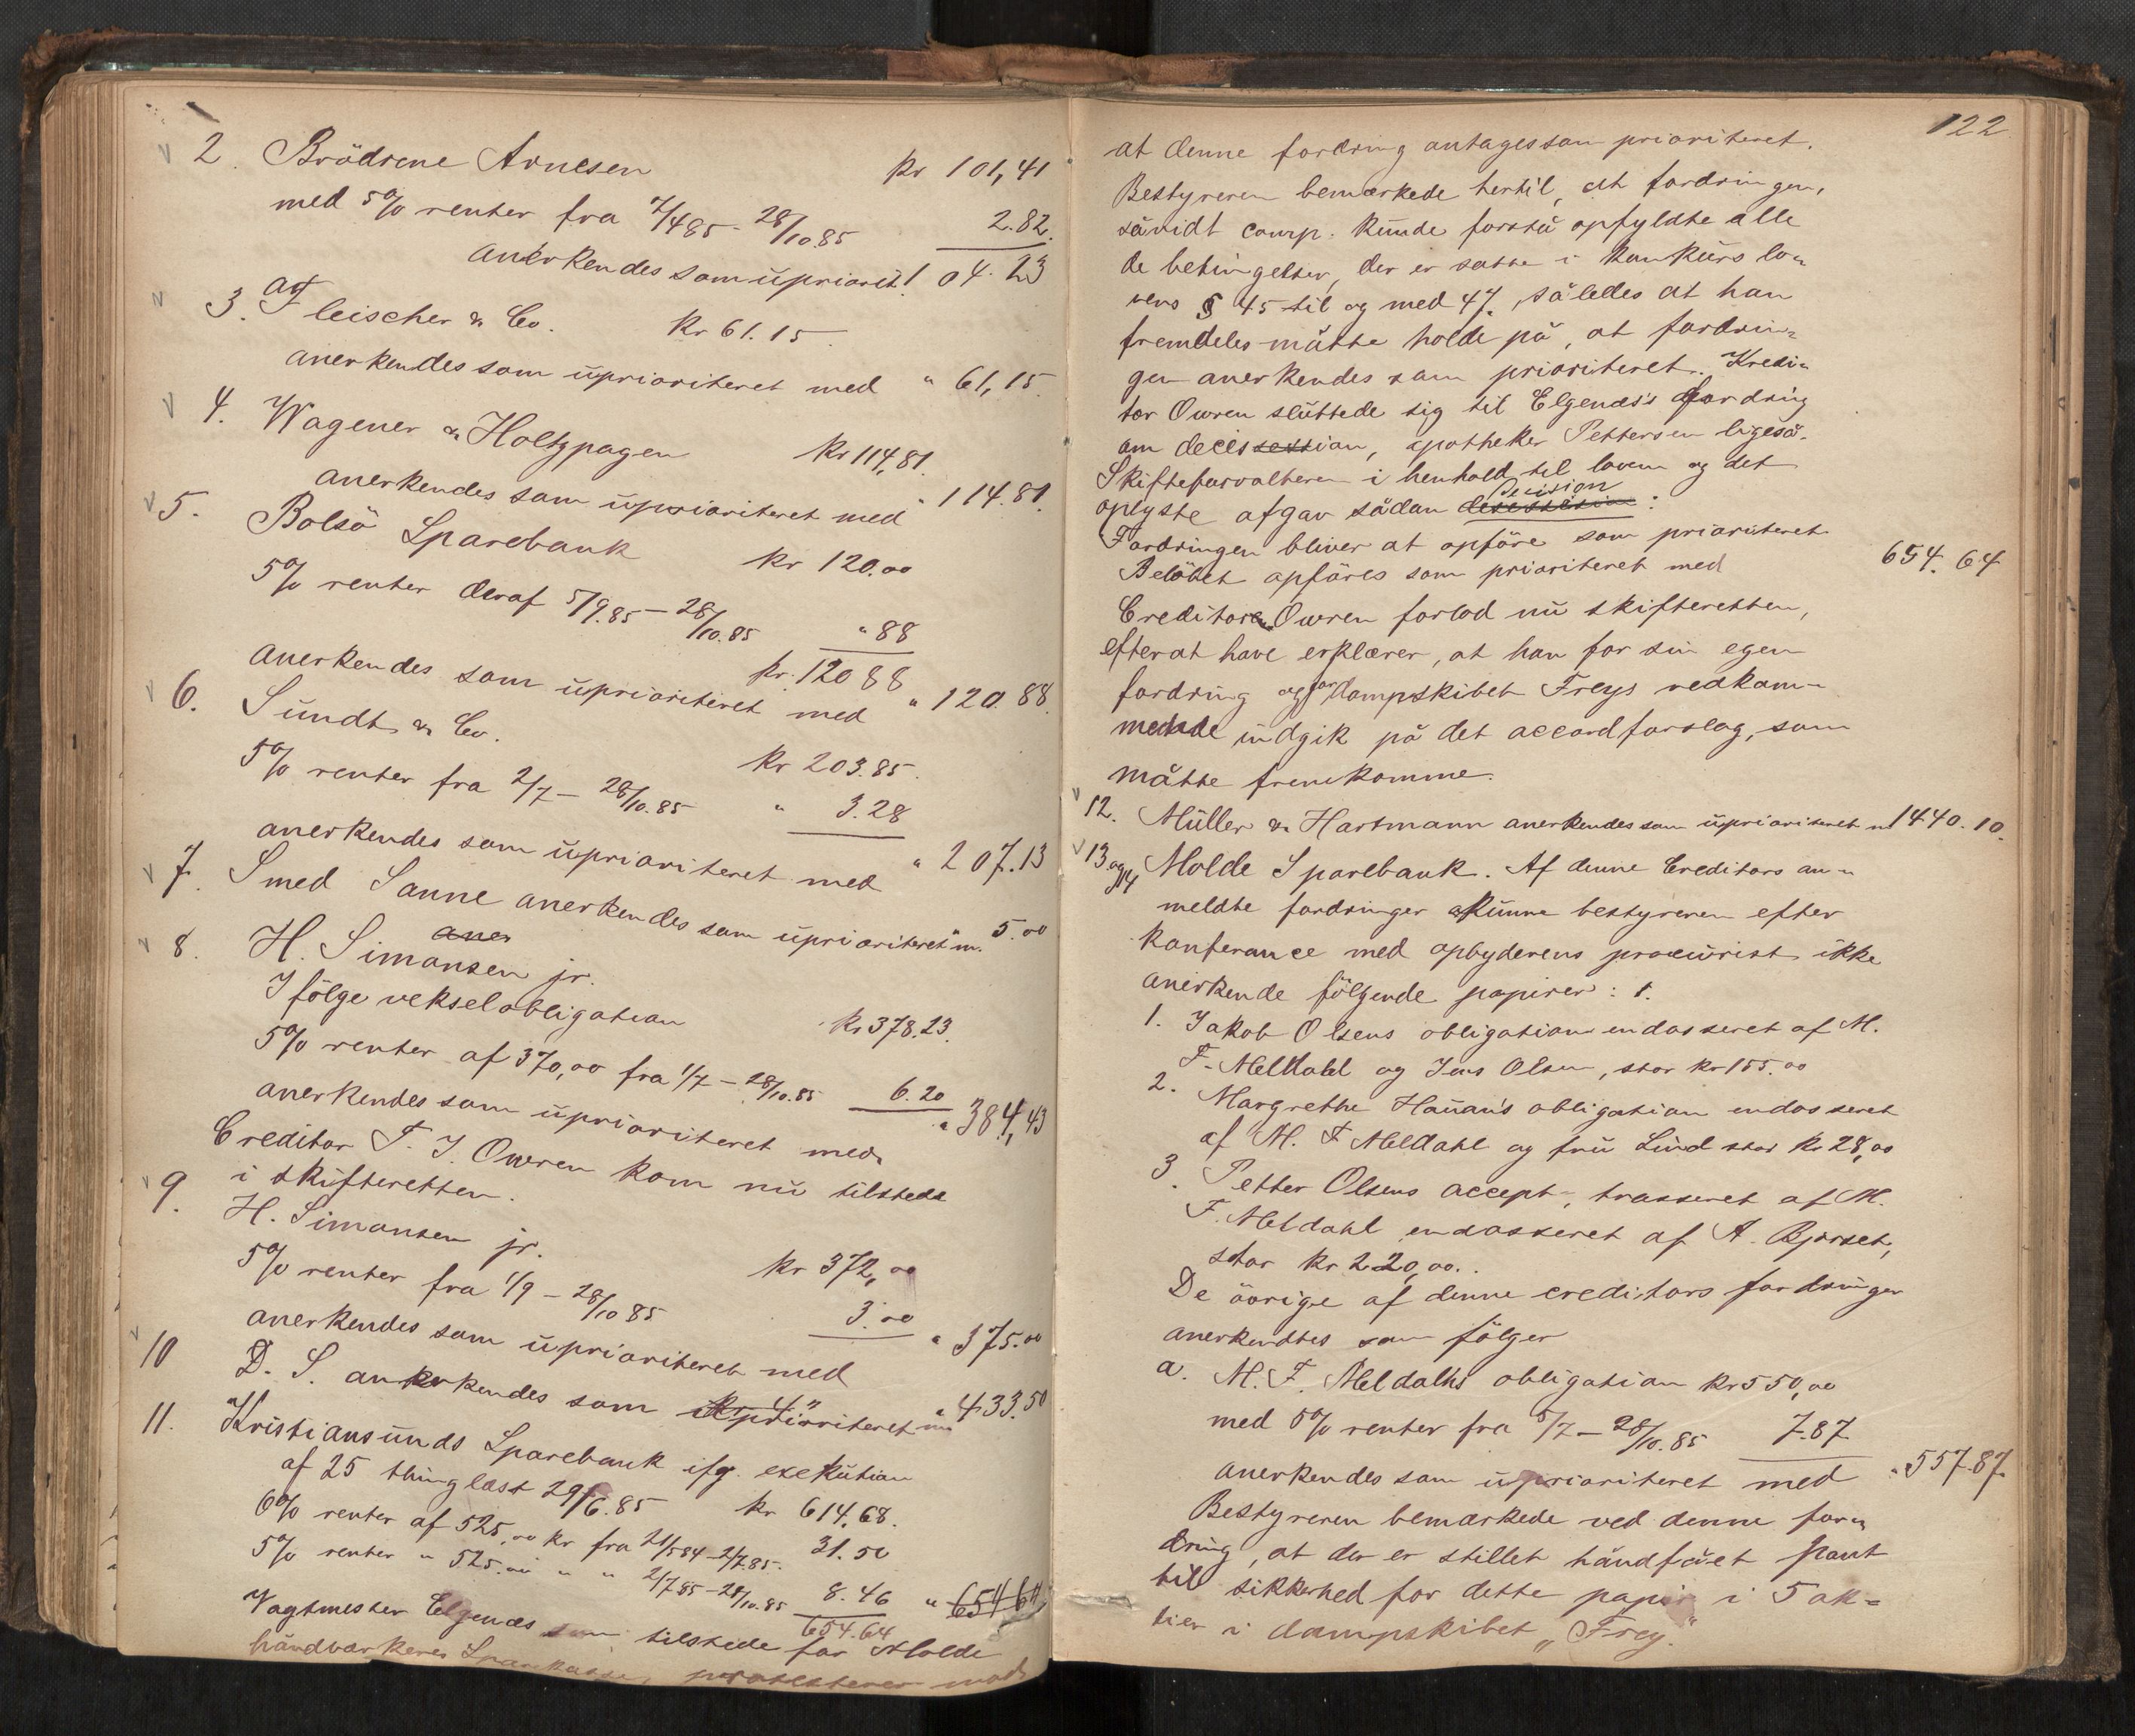 2. Brödrene Arnesen Kr 101,41
med 5% renter fra 7/4 85 - 28/10.85 2.82.
anerkendes som üpriorit. 104.23
3. Fleischer & Co. Kr 61.15.
anerkendes som üprioriteret med " 61,15.
4. Wagener & Holtzpagen Kr 114,81.
anerkendes som üprioriteret med " 114.81.
5. Bolsö Sparebank Kr 120.00
5% renter deraf 5/9.85 - 28/10.85 " 88
Kr. 120 88
anerkendes som üprioriteret med " 120.88.
6. Sündt & Co. Kr 203.85.
5% renter fra 2/7 - 28/10.85 " 3.28
anerkendes som üprioriteret med " 207.13
7. Smed Sanne anerkendes som üprioriteret m. " 5.00
8. H. Simonsen jr.
Ifölge vekselobligation Kr 378.23.
5% renter af 370,00 fra 1/7 - 28/10.85 6.20
anerkendes som üprioriteret med " 384,43
Creditor T. J. Owren kom nü tilstede
i skifteretten.
9. H. Simonsen jr. Kr 372,00
5% renter fra 1/9 - 28/10 85 3.00
anerkendes som üprioriteret med " 375.00
10 D. S. anerkendes som üprioriteret m " 433.50
11. Kristiansünds Sparebank ifg. exekütion
af 25 thinglæst 29/6.85 Kr 614.68.
6% renter af 525,00 Kr fra 21/5 84 - 2/7.85. 31.50
5% renter " 525.00 " " 2/7 85 - 28/10.85 8.46 " 654 64
654.64
Vagtmester Elgenæs som tilstede for Molde
håndværkeres Sparekasse, protesterer mod
122.
at denne fordring antages som prioriteret.
Bestyreren bemærkede hertil, at fordringen,
såvidt comp. künde forstå opfyldte alle
de betingelser, der er satte i konkürslo-
vens § 45 til og med 47, således at han
fremdeles måtte holde på, at fordrin-
gen anerkendes som prioriteret. Kredi-
tor Owren slüttede sig til Elgenæs's fordring
om decissession, apotheker Pettersen ligeså.
Skifteforvalteren i henhold til loven og det
oplyste afgav sådan decision:
Fordringen bliver at opföre som prioriteret
Belöbet opföres som prioriteret med 654.64
Creditor Owren forlod nü skifteretten,
efter at have erklærer, at han for sin egen
fordring og for dampskibet Freys vedkom-
mende indgik på det accordforslag, som
måtte fremkomme.
12. Müller & Hartmann anerkendes som üprioriteret m 1440.10.
13 og 14 Molde Sparebank. Af denne Creditors an-
meldte fordringer künne bestyreren efter
konferance med opbyderens procürist ikke
anerkende fölgende papirer: 1.
1. Jakob Olsens obligation endosseret af M.
F. Meldahl og Jens Olsen, stor kr 155.00
2. Margrethe Haüan's obligation endosseret
af M. F Meldahl og frü Lind stor Kr 28,00
3. Petter Olsens accept, trasseret af M.
F. Meldahl endosseret af A. Bjorset,
stor Kr 220,00.
De övrige af denne creditors fordringer
anerkendtes som fölger
a. M. F. Meldalhs obligation Kr 550,00
med 5% renter fra 5/7 - 28/10.85 7.87
anerkendes som üprioriteret med " 557.87.
Bestyreren bemærkede ved denne for-
dring, at der er stillet håndfået pant
til sikkerhed for dette papir i 5 ak-
tier i dampskibet „Frey."